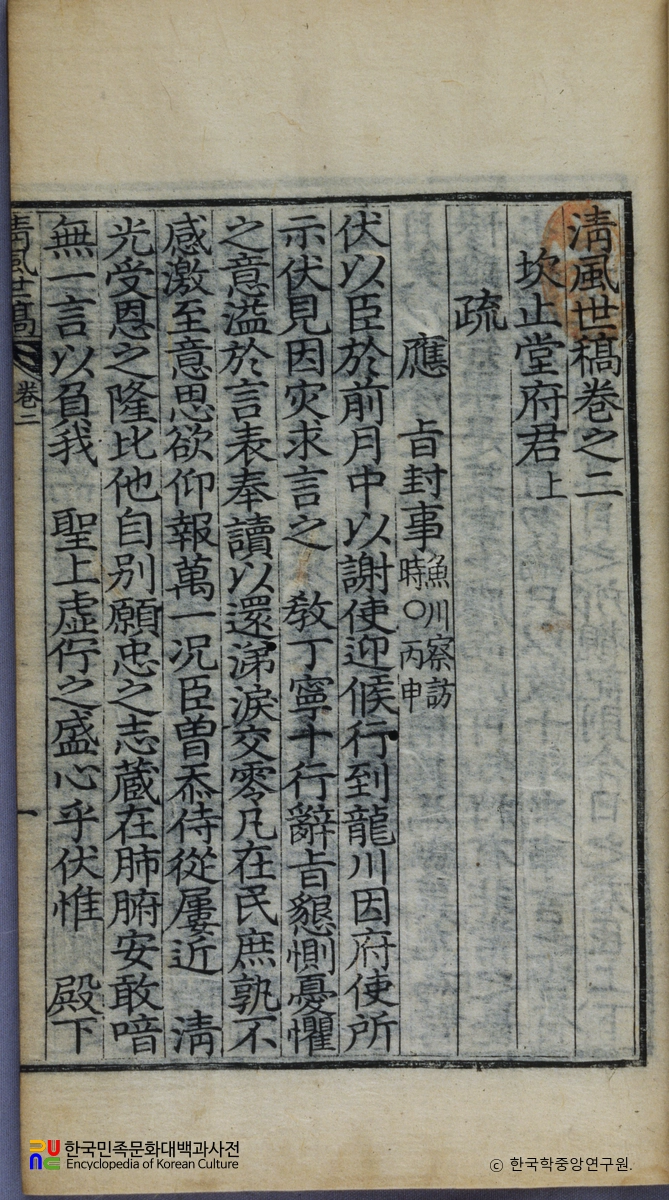 淸風世稿卷之二
坎止堂府君上
疏
應 旨封事魚川察訪時○丙申
伏以臣於前月中以謝使迎候行到龍川因府使所
示伏見因灾求言之 敎丁寧十行辭旨懇惻憂懼
之意溢於言表奉讀以還涕淚交零凡在民庶孰不
感激至意思欲仰報萬一况臣曾忝侍從屢近 淸
光受恩之隆比他自別願忠之志蔵在肺腑安敢喑
無一言以負我 聖上虛佇之盛心乎伏惟 殿下
淸風世稿 卷二 一
한국민족문화대백과사전
Encyclopedia of Korean Culture
© 한국학중앙연구원.